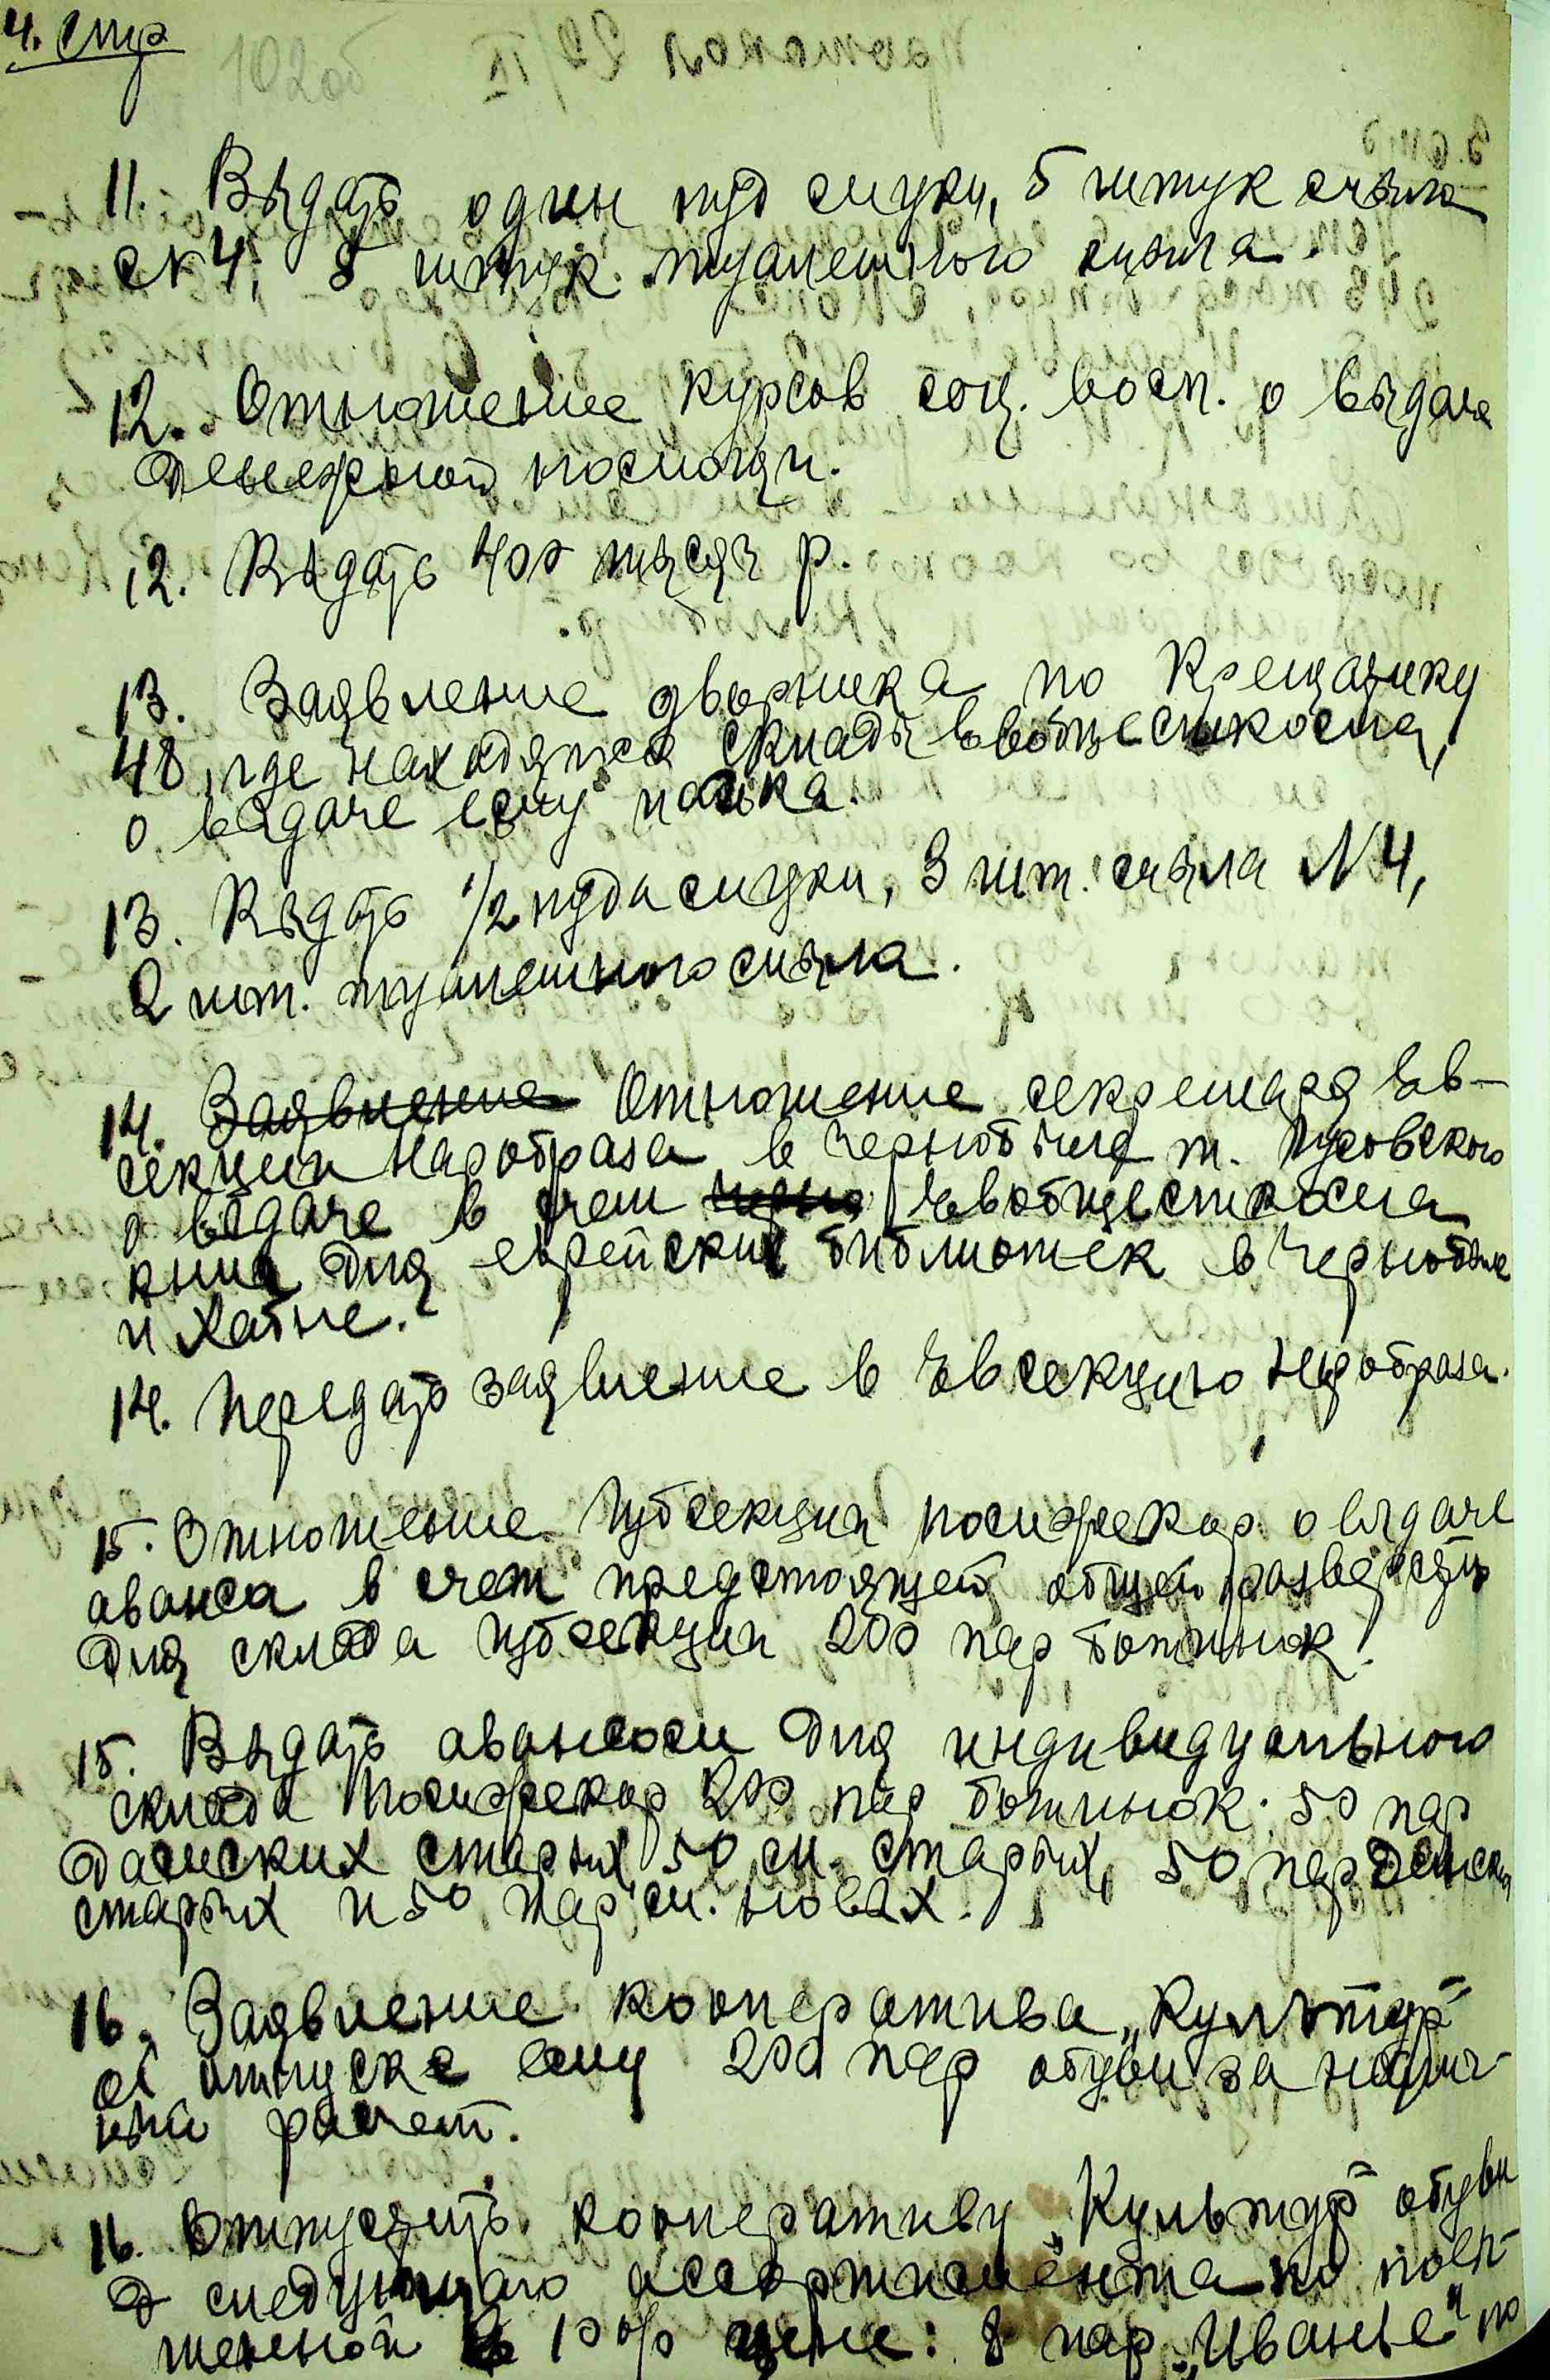 4. стр
102об
11. Выдать один пуд муки, 5 штук мыла
№ 4, 5 штук туалетного мыла.
12. Отношение курсов соц. восп. о выдаче
денежной помощи.
12. Выдать 400 тысяч р.
13. Заявление дворника по Крещатику
48, где находятся склады Евобщесткома,
о выдаче ему пайка.
13. Выдать 1/2 пуда муки, 3 шт. мыла № 4,
2 шт. туалетного мыла.
14. Заявление Отношение секретаря Ев-
секции Наробраза в Чернобыле т.
о выдаче в счет Евобщесткома
книг для еврейских библиотек в Чернобыле
и Хабне.
14. Передать заявление в Евсекцию Наробраза.
15. Отношение Губсекции Помжекор о выдаче
аванса в счет предстоящей общей разверстки
для склада Губсекции 200 пар ботинок.
15. Выдать авансом для индивидуального
склада Помжекор 200 пар ботинок: 50 пар
дамских старых, 50 м. старых, 50 пар детских
старых и 50 пар м. новых.
16. Заявление кооператива „Культур"
об отпуске ему 200 пар обуви за налич-
ный расчет.
16. Отпустить кооперативу „Культур" обуви
следующаго ассортимента по повы-
шенной 10% цене: 8 пар „Иванье" по